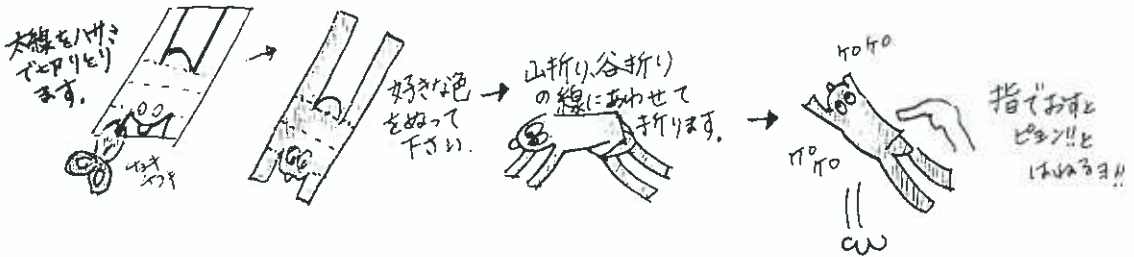 太線をハサミ
で切りとり
ます。
チョキ
チョキ
好きな色
をぬって
下さい。
山折り、谷折り
の線にあわせて
折ります。
ケロケロ
ケロ
ケロ
指でおすと
ピョン!!と
はねるヨ!!